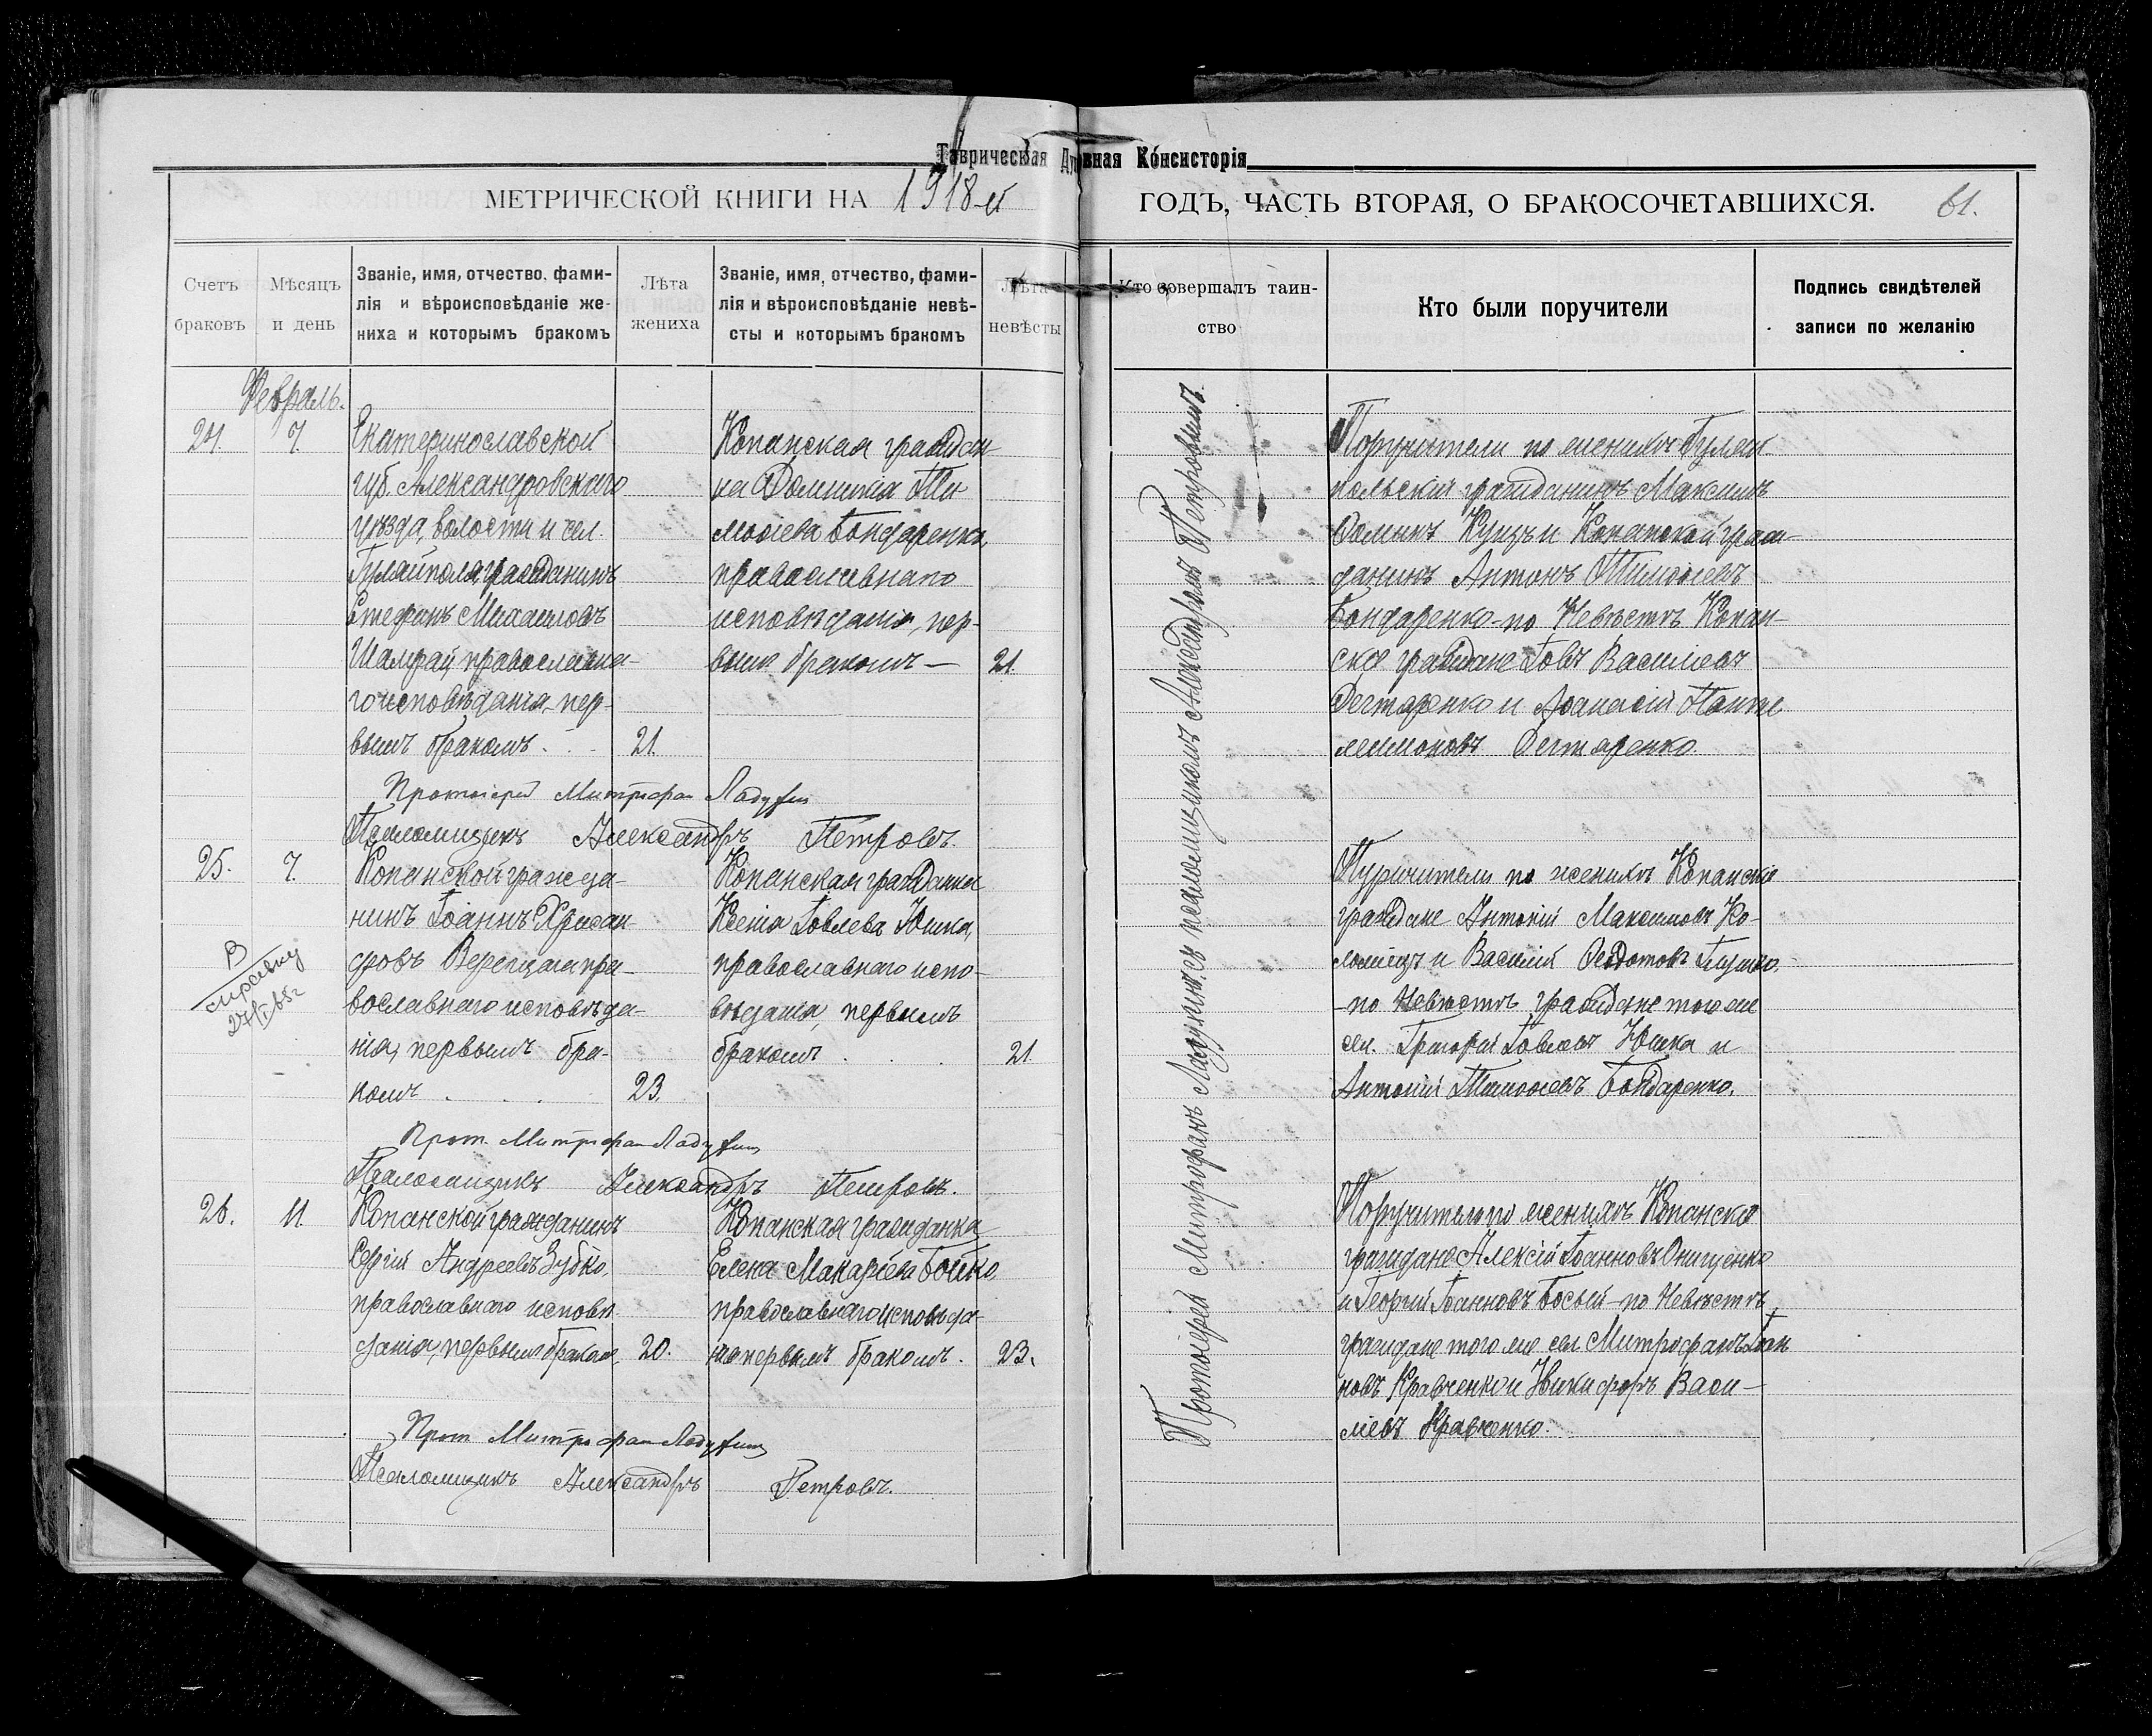 Таврическая Духовная Консисторія
МЕТРИЧЕСКОЙ КНИГИ НА 1918-й ГОДЪ, ЧАСТЬ ВТОРАЯ, О БРАКОСОЧЕТАВШИХСЯ. 61.
Счетъ браковъ
Мѣсяцъ и день
Званіе, имя, отчество, фами-
лія и вѣроисповѣданіе же-
ниха и которымъ бракомъ
Лѣта жениха
Званіе, имя, отчество, фами-
лія и вѣроисповѣданіе невѣ-
сты и которымъ бракомъ
Лѣта невѣсты
Кто совершалъ таин-
ство
Кто были поручители
Подпись свидѣтелей
записи по желанію
Февраль.
24. 7.
Екатеринославской
губ. Александровскаго
уѣзда, волости и сел.
Гуляйполя гражданинъ
Стефанъ Михаиловъ
Шамрай, православна-
го исповѣданія, пер-
вымъ бракомъ. 21.
Копанская граждан
ка Домникія Ти
моѳеева Бондаренко,
православнаго
исповѣданія, пер-
вымъ бракомъ — 21.
Поручители по женихѣ Гуляй
польскій гражданинъ Максимъ
Куцъ и Копанской граж-
данинъ Антонъ Тимоѳеевъ
Бондаренко - по Невѣстѣ Копан-
скіе граждане Іовъ Василіевъ
Дегтяренко и Аѳанасій Панте
леимоновъ Дегтяренко.
Протоіерей Митрофан Ладухин
Псаломщикъ Александръ Петровъ.
25. 7.
В справку
Копанской гражда-
нинъ Іоаннъ Хрисан-
фовъ Верещага пра-
вославнаго исповѣда-
нія, первымъ бра-
комъ . . . 23.
Копанская гражданка
Ксенія Іовлева Юшка,
православнаго испо-
вѣданія, первымъ
бракомъ . . 21
Поручители по женихѣ Копанскіе
граждане Антоній Максимовъ Ко-
ломіецъ и Василій Ѳеодотовъ
- по Невѣстѣ граждане того же
сел. Григорій Іовлевъ Юшка и
Антоній Тимоѳеевъ Бондаренко.
Прот. Митрофан Ладухин
Псаломщикъ Александръ Петровъ.
26. 11.
Копанской гражданинъ
Сергій Андреевъ Зубко,
православнаго исповѣ
данія, первымъ бракомъ, 20.
Копанская гражданка
Елена Макаріева Бойко,
православнаго исповѣда-
нія первымъ бракомъ. 23.
Поручители по женихѣ Копанскіе
граждане Алексій Іоанновъ Онищенко
и Георгій Іоанновъ Босый - по Невѣстѣ
граждане того же сел Митрофанъ Іоан
новъ Кравченко и Никифоръ Васи-
ліевъ Кравченко.
Прот Митрофан Ладухин
Псаломщикъ Александръ Петровъ.
Протоіерей Митрофанъ Ладухинъ съ псаломщикомъ Александромъ Петровымъ.